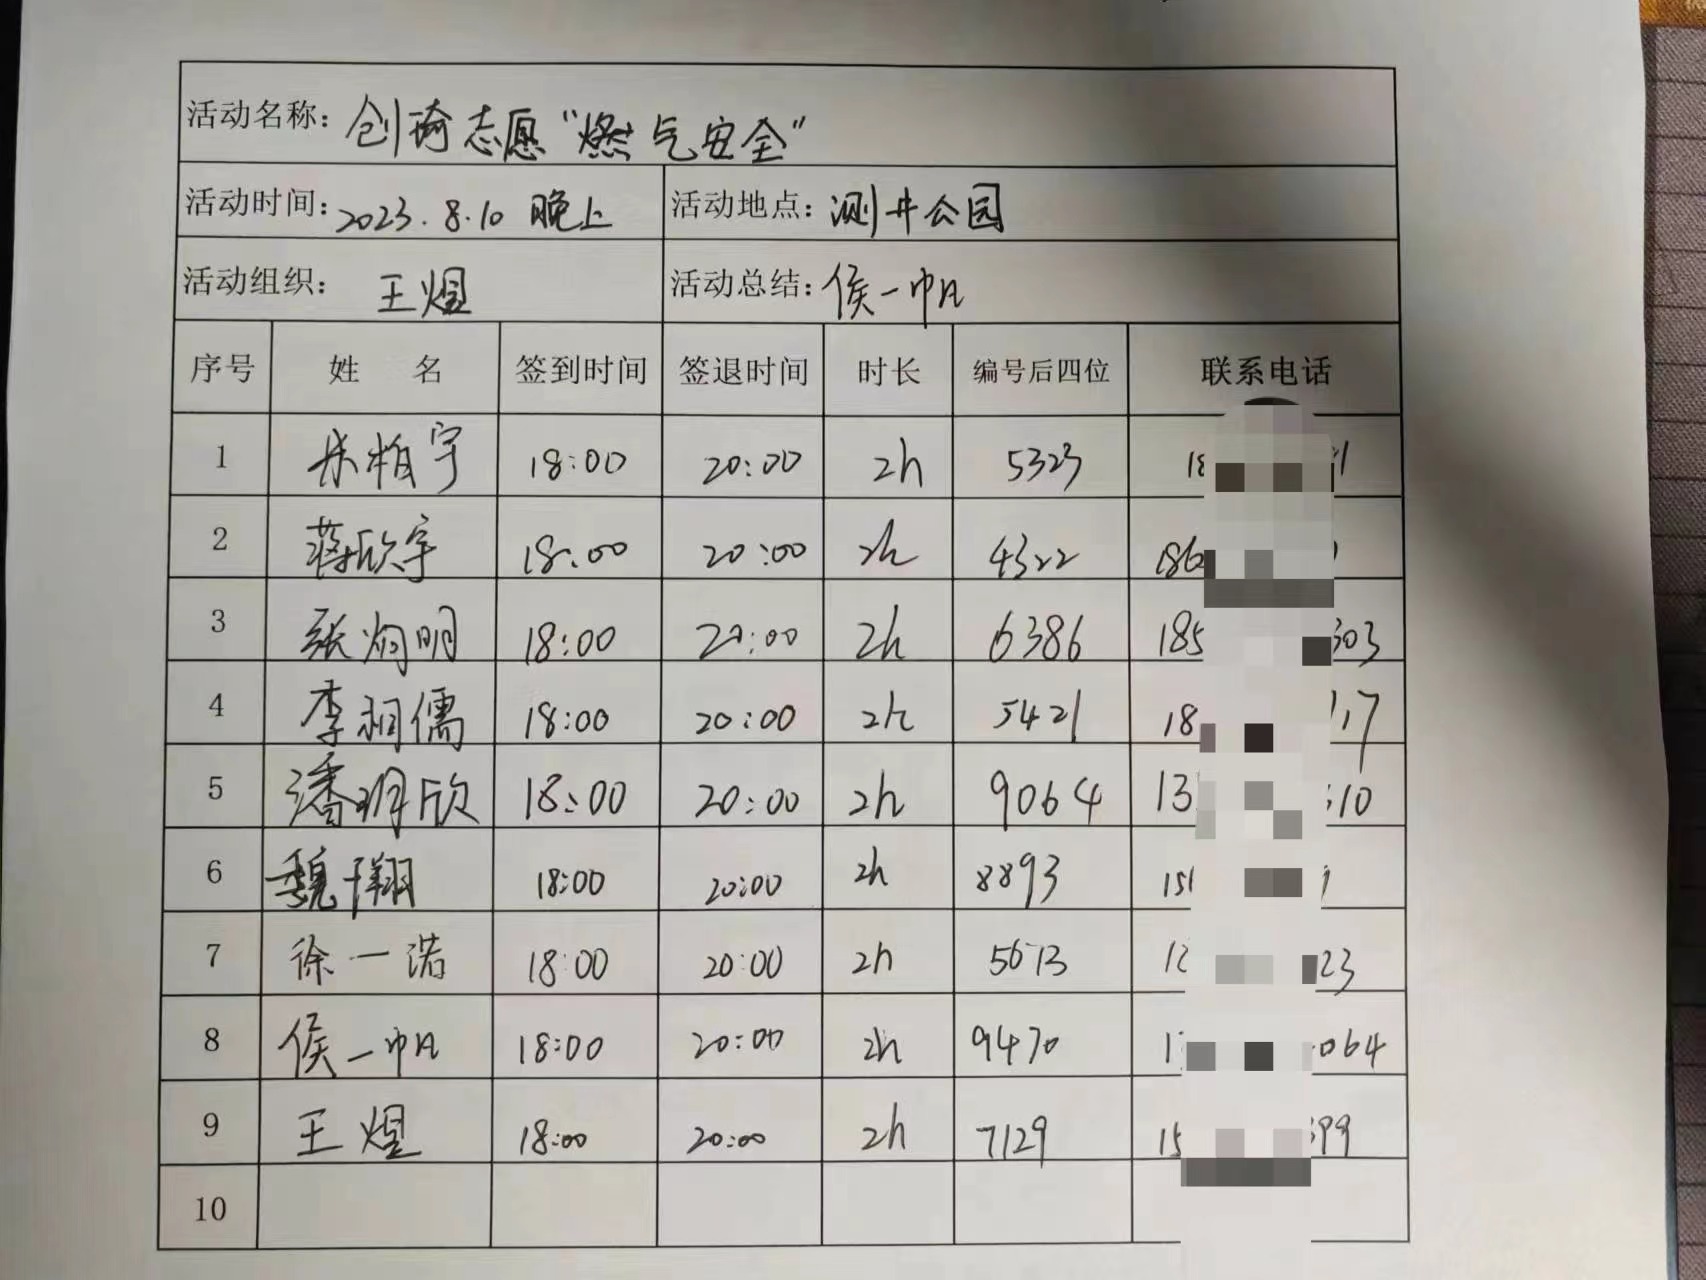 活动名称：创琦志愿“燃气安全”
活动时间：2023.8.10 晚上 活动地点：测井公园
活动组织：王煜 活动总结：侯一帆
序号 姓 名 签到时间 签退时间 时长 编号后四位 联系电话
1 朱柏宇 18:00 20:00 2h 5323 18 1
2 蒋欣宇 18:00 20:00 2h 4322 186
3 张炯明 18:00 20:00 2h 6386 185 303
4 李润儒 18:00 20:00 2h 5421 18 17
5 潘玥欣 18:00 20:00 2h 9064 13 10
6 魏翔 18:00 20:00 2h 8893 15
7 徐一诺 18:00 20:00 2h 5673 1 23
8 侯一帆 18:00 20:00 2h 9470 1 064
9 王煜 18:00 20:00 2h 7129 15 99
10